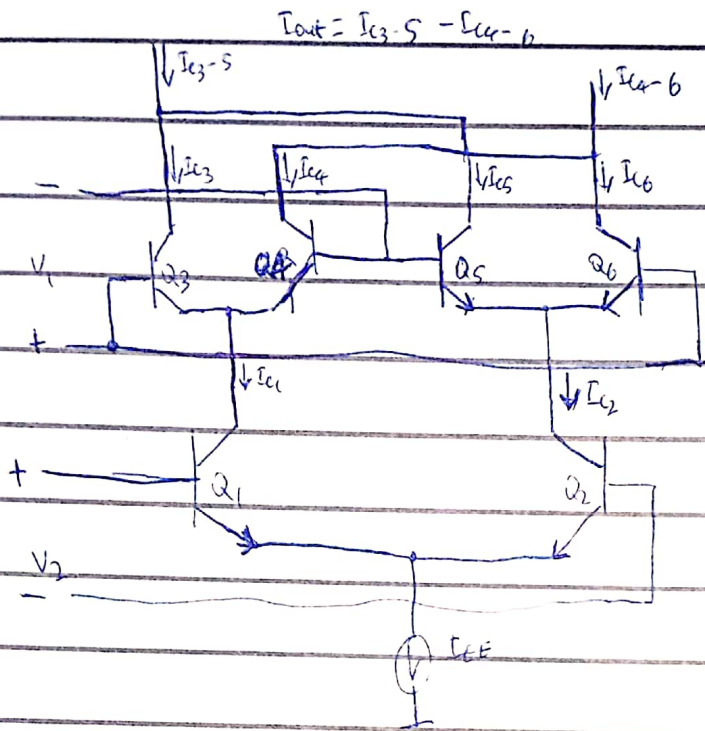 Iout = Ic3-5 - Ic4-6
Ic3-5
Ic4-6
Ic3
Ic4
Ic5
Ic6
-
V1
Q3
Q4
Q5
Q6
+
Ic1
Ic2
+
Q1
Q2
V2
-
IEE